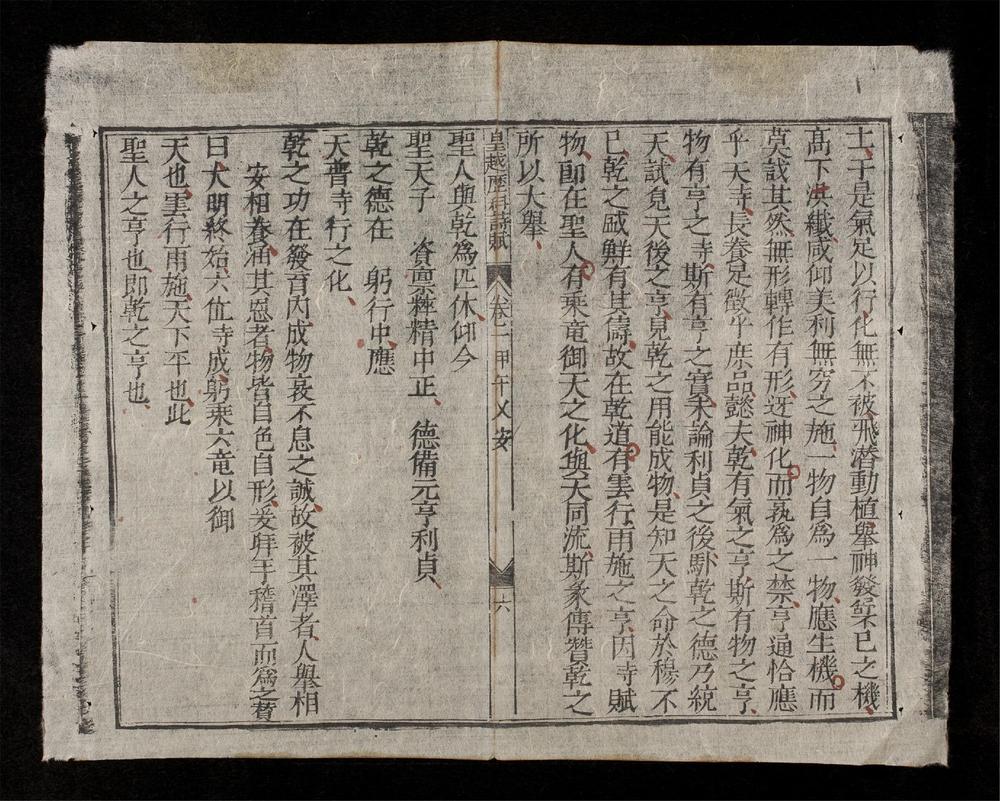 土于是氣足以行化無不被飛潛動植舉神發不已之機
高下洪纖咸仰美利無窮之施一物自爲一物應生機而
莫說其然無形轉作有形迓神化而孰爲之禁亨通恰應
乎天寺長養足徵乎庶品懿夫乾有氣之亨斯有物之亨
物有亨之寺斯有亨之實未論利貞之後馱乾之德乃統
天試見天後之亨見乾之用能成物是知天之命於穆不
已乾之盛鮮有其儔故在乾道有雲行雨施之亨因寺賦
物即在聖人有乘竜御天之化與天同流斯彖傳贊乾之
所以大舉
皇越歷科詩賦 卷二 甲午乂安 六
聖人與乾爲匹休仰今
聖天子 資稟粹精中正 德備元亨利貞
乾之德在 躬行中應
天普寺行之化
乾之功在發育內成物衮不息之誠故被其澤者人舉相
安相養涵其恩者物皆自色自形爰拜手稽首而爲之贊
曰大明終始六位寺成躬乘六竜以御
天也雲行雨施天下平也此
聖人之亨也即乾之亨也